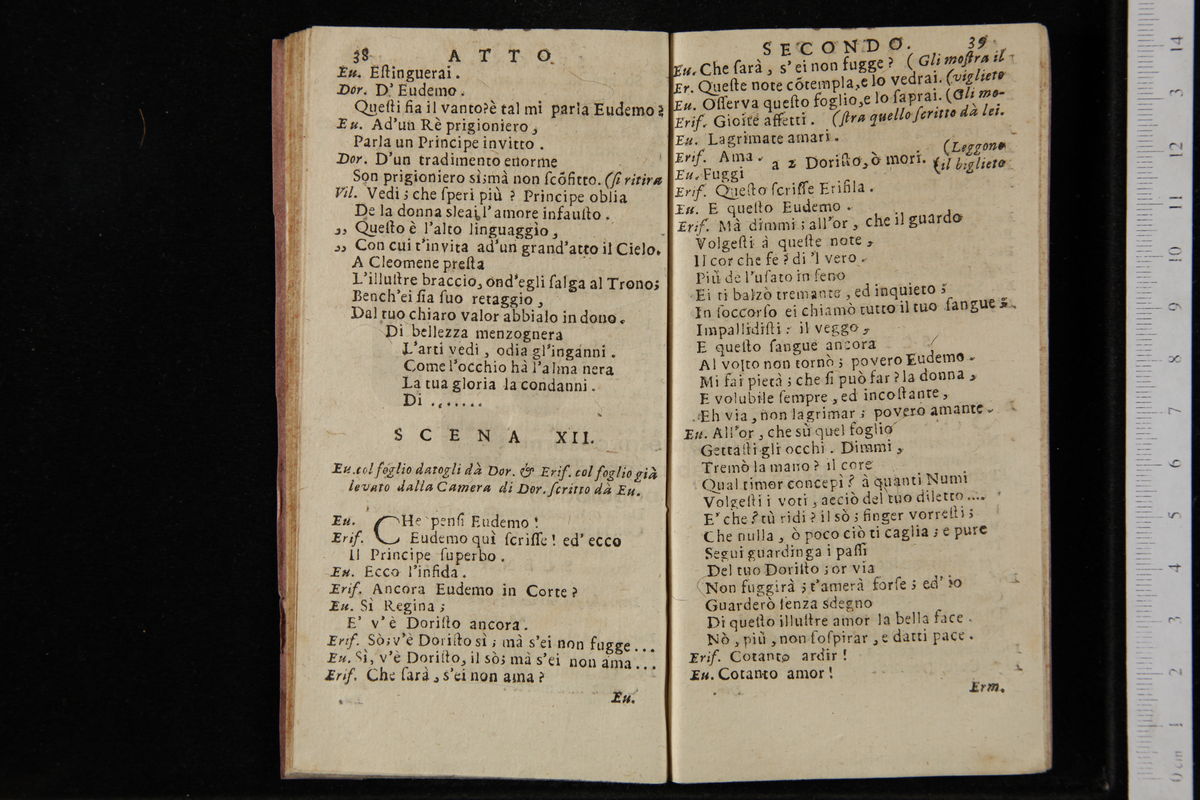 38 ATTO
Eu. Eſtinguerai.
Dor. D'Eudemo.
Queſti ſia il vanto?è tal mi parla Eudemo?
Eu. Ad'un Rè prigioniero,
Parla un Principe invitto.
Dor. D'un tradimento enorme
Son prigioniero sì;mà non ſcõfitto. (ſi ritira
Vil. Vedi; che ſperi più? Principe oblia
De la donna sleal l'amore infauſto.
,, Queſto è l'alto linguaggio,
,, Con cui t'invita ad'un grand'atto il Cielo.
A Cleomene preſta
L'illuſtre braccio, ond'egli ſalga al Trono;
Bench'ei ſia ſuo retaggio,
Dal tuo chiaro valor abbialo in dono.
Di bellezza menzognera
L'arti vedi, odia gl'inganni.
Come l'occhio hà l'alma nera
La tua gloria la condanni.
Di .......
SCENA XII.
Eu.col foglio datogli dà Dor. & Erif. col foglio già
levato dalla Camera di Dor. ſcritto dà Eu.
Eu. CHe penſi Eudemo!
Erif. Eudemo quì ſcriſſe! ed'ecco
Il Principe ſuperbo.
Eu. Ecco l'infida.
Erif. Ancora Eudemo in Corte?
Eu. Sì Regina;
E' v'è Doriſto ancora.
Erif. Sò;v'è Doriſto sì; mà s'ei non fugge...
Eu. Sì, v'è Doriſto, il sò; mà s'ei non ama...
Erif. Che ſarà, s'ei non ama?
Eu.
SECONDO. 39
Eu. Che ſarà, s'ei non fugge? (Gli moſtra il
Er. Queſte note cõtempla,e lo vedrai. (viglieto
Eu. Oſſerva queſto foglio,e lo ſaprai. (Gli mo-
Erif. Gioite affetti. (ſtra quello ſcritto dà lei.
Eu. Lagrimate amari.
Erif. Ama. a 2 Doriſto, ò mori. (Leggono
Eu. Fuggi (il biglieto
Erif. Queſto ſcriſſe Erifila.
Eu. E queſto Eudemo.
Erif. Mà dimmi; all'or, che il guardo
Volgeſti à queſte note,
Il cor che fe? di 'l vero.
Più de l'uſato in ſeno
Ei ti balzò tremante, ed inquieto;
In ſoccorſo ei chiamò tutto il tuo ſangue;
Impallidiſti: il veggo,
E queſto ſangue ancora
Al volto non tornò; povero Eudemo.
Mi fai pietà; che ſi può far? la donna,
E volubile ſempre, ed incoſtante,
Eh via, non lagrimar; povero amante.
Eu. All'or, che sù quel foglio
Gettaſti gli occhi. Dimmi,
Tremò la mano? il core
Qual timor concepì? à quanti Numi
Volgeſti i voti, acciò del tuo diletto....
E' che? tù ridi? il sò; finger vorreſti;
Che nulla, ò poco ciò ti caglia; e pure
Segui guardinga i paſſi
Del tuo Doriſto; or via
Non fuggirà; t'amerà forſe; ed' io
Guarderò ſenza sdegno
Di queſto illuſtre amor la bella face.
Nò, più, non ſoſpirar, e datti pace.
Erif. Cotanto ardir!
Eu. Cotanto amor!
Erm.
14
13
12
11
10
9
8
7
6
5
4
3
2
1
0 cm